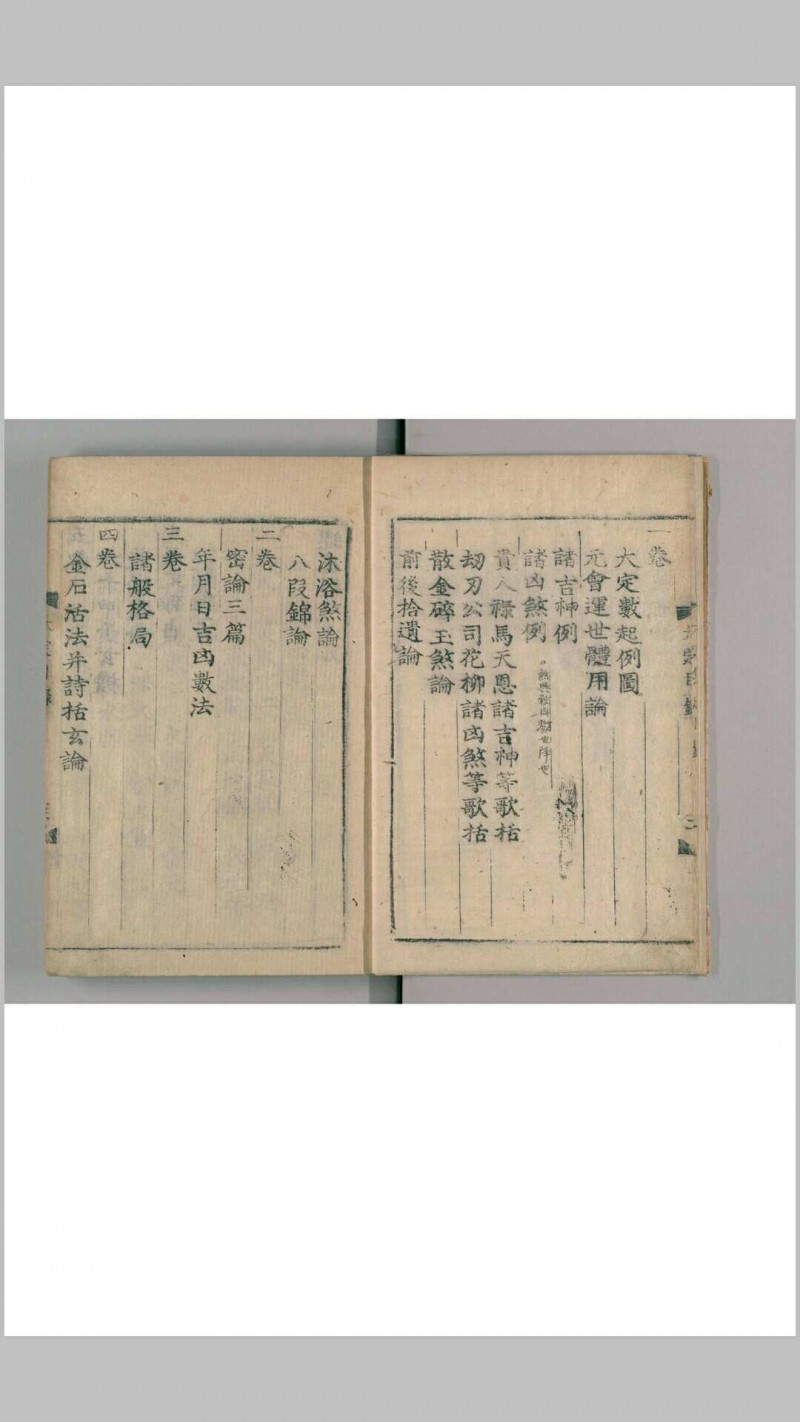 一卷
大定數起例圖
元會運世體用論
諸吉神例
諸凶煞例
貴人祿馬天恩諸吉神等歌括
劫刃公司花柳諸凶煞等歌括
散金碎玉煞論
前後拾遺論
沐浴煞論
八段錦論
二卷
密論三篇
年月日吉凶數法
三卷
諸般格局
四卷
金石活法并詩括玄論